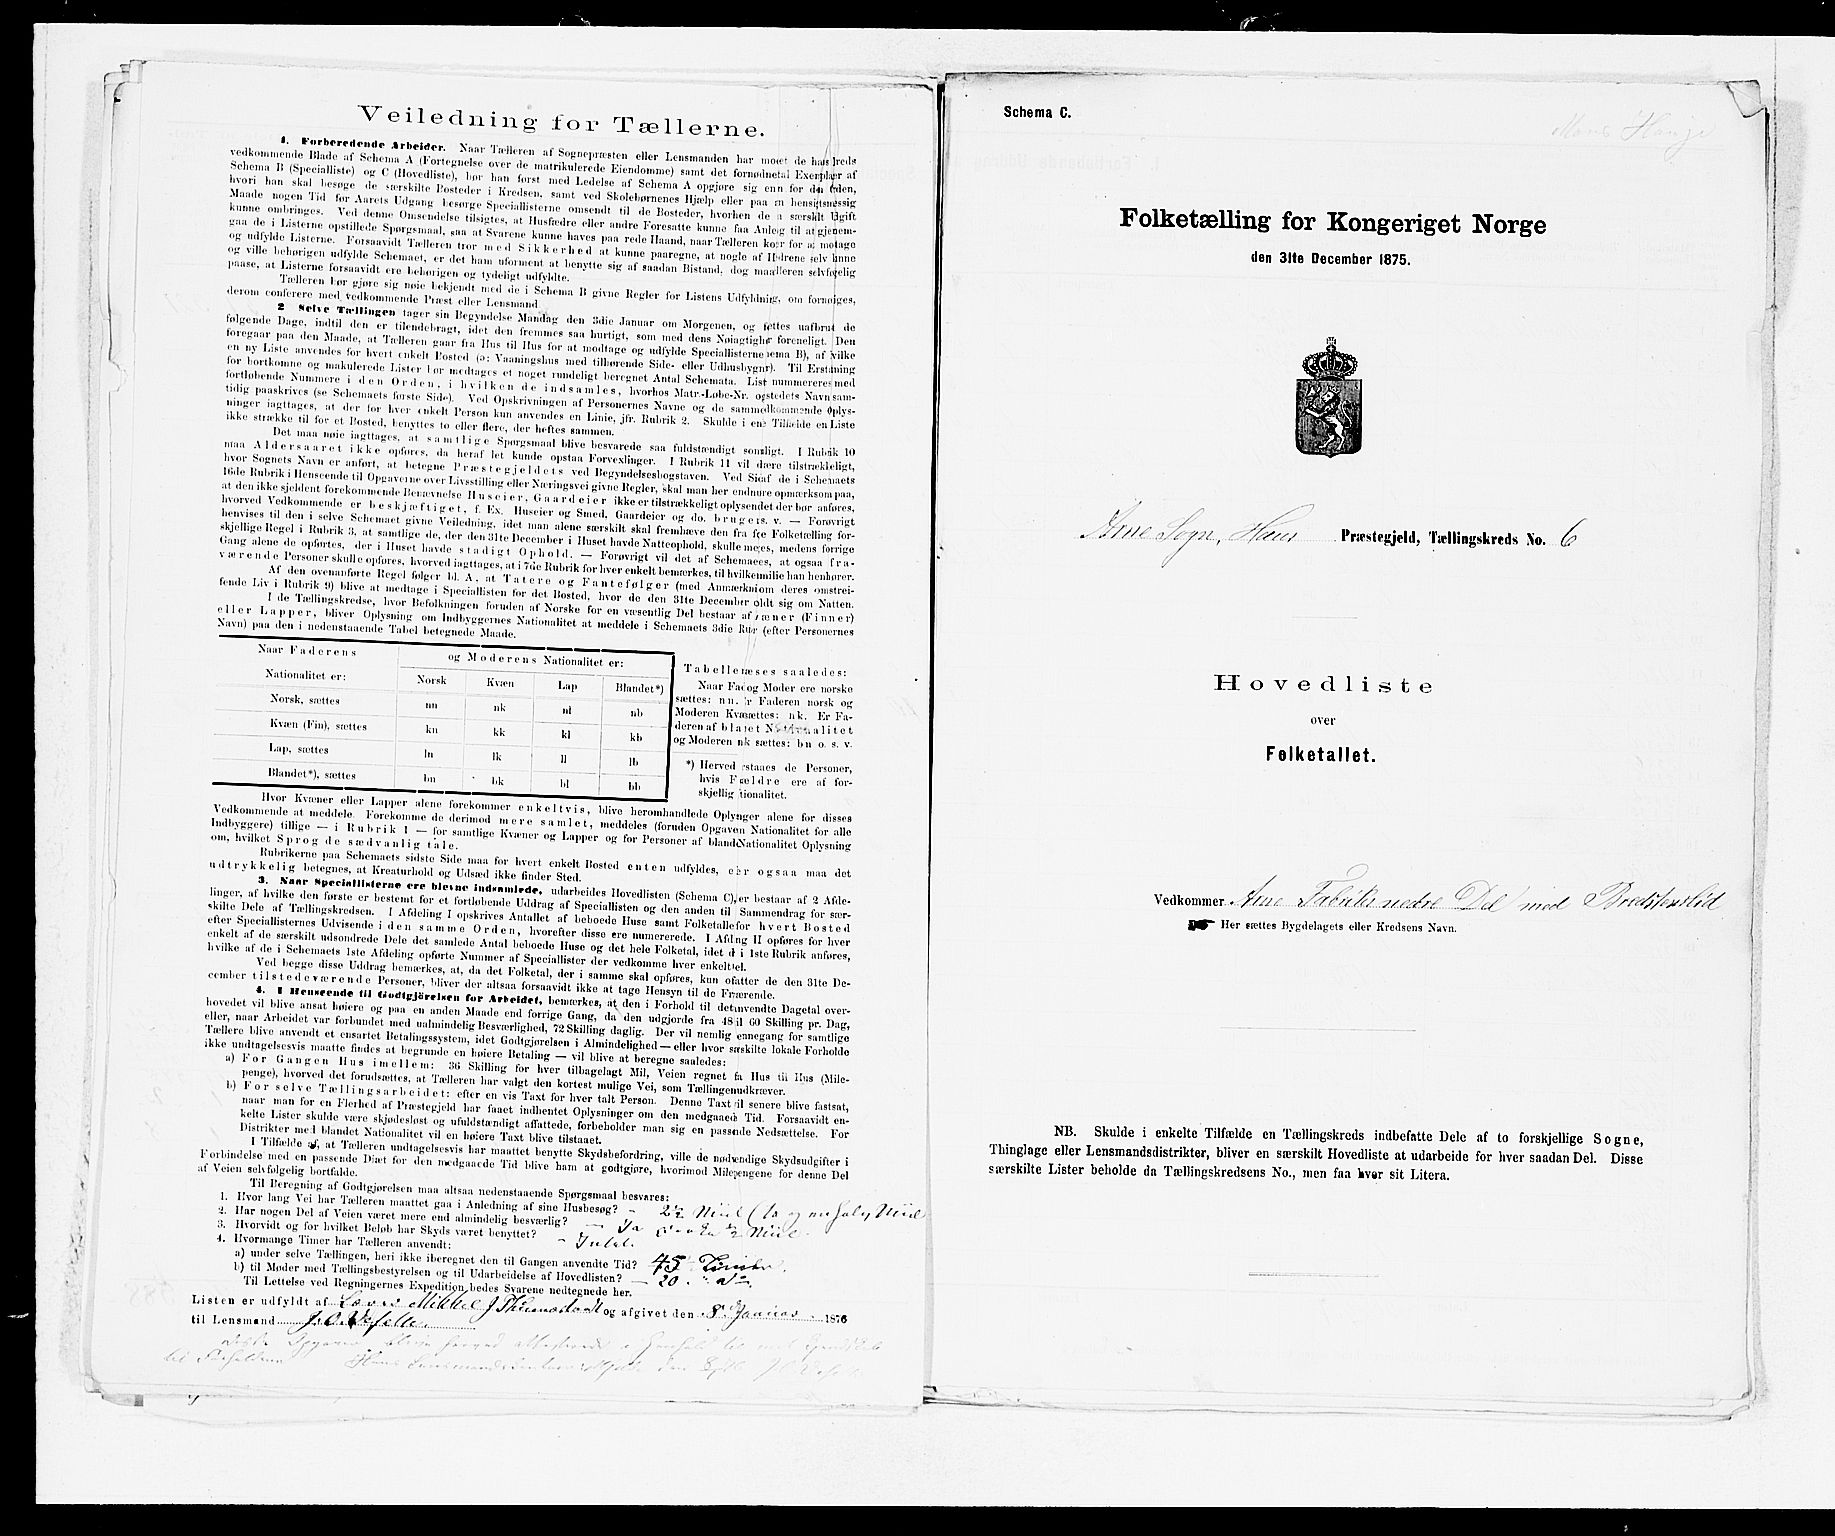 Veiledning for Tællerne.
1. Forberedende Arbeider. Naar Tælleren af Sognepræsten eller Lensmanden har
vedkommende Blade af Schema A (Fortegnelse over de matrikulerede Eiendomme) samt det fornødne Exemplar af
Schema B (Specialliste) og C (Hovedliste), bør han først med Ledelse af Schema A opgjøre sig en
hvori han skal besøge de særskilte Bosteder i Kredsen, samt ved Skolebørnenes Hjælp eller paa
Maade nogen Tid før Aarets Udgang besørge Speciallisterne omsendt til de Bosteder, hvorhen de særskilt
kunne ombringes. Ved denne Omsendelse tilsigtes, at Husfædre eller andre Foresatte kunne faa Anledning til at gjennem-
gaa de i Listerne opstillede Spørgsmaal, saa at Svarene kunne haves paa rede Haand, naar Tælleren
og udfylde Listerne. Forsaavidt Tælleren tror med Sikkerhed at kunne paaregne, at nogle af selv
og ville behørigen udfylde Schemaet, er det ham uforment at benytte sig af saadan Bistand, dog
paase, at Listerne forsaavidt ere behørigen og tydeligt udfyldte.
Tælleren bør gjøre sig nøie bekjendt med de i Schema B givne Regler for Listens Udfyldning, om fornøiges,
derom conferere med vedkommende Præst eller Lensmand
2 Selve Tællingen tager sin Begyndelse Mandag den 3die Januar om Morgenen, og
følgende Dage, indtil den er tilendebragt, idet den fremmes saa hurtigt, som med dens Nøiagtighed foreneligt. Den
foregaar paa den Maade, at Tælleren gaar fra Hus til Hus for at modtage og udfylde Speciallisterne
en ny Liste anvendes for hvert enkelt Bosted (ɔ: Vaaningshus med tilhørende Side- eller Udhusbygnr). Til
for bortkomne og makulerede Lister bør medtages et noget rundeligt beregnet Antal Schemata.
fortløbende Nummere i den Orden, i hvilken de indsamles, hvorhos Matr.-Løbe-Nr.
tidig paaskrives (se Schemaets første Side). Ved Opskrivningen af Personernes Navne og de
ninger iagttages, at der for hver enkelt Person kun anvendes en Linie, jfr. Rubrik 2. Skulde i en Liste
ikke strække til for et Bosted, benyttes to eller flere, der heftes sammen.
Det maa nøie iagttages, at samtlige Spørgsmaal blive besvarede saa fuldstændigt I Rubrik 10
maa Aldersaaret ikke opføres, da heraf let kunde opstaa Forvexlinger. I Rubrik 11 vil være tilstrækkeligt,
hvor Sognets Navn er anført, at betegne Præstegjeldets ved Begyndelsesbogstaven. Ved Siden af de i Schemaets
16de Rubrik i Henseende til Opgaverne over Livsstilling eller Næringsvei givne Regler, skal man her endnu
at den ikke sjeldent forekommende Benævnelse Huseier, Gaardeier ikke er tilstrækkeligt oplysende
hvorved Vedkommende er beskjæftiget, f. Ex. Huseier og Smed, Gaardeier og do. bruger s. v. — Forøvrigt
henvises til den i selve Schemaet givne Veiledning, idet man alene særskilt skal fremhæve den fra Folketælling for-
skjellige Regel i Rubrik 3, at samtlige de, der den 31te December i Huset havde Natteophold, skulle
Gang alene de opførtes, der i Huset havde stadigt Ophold. — Forøvrigt vil det af Schemaet at ogsaa fra-
værende Personer skulle opføres, hvorved iagttages, at i 7de Rubrik for hver enkelt bemærkes, til hvilken
Af den ovenanførte Regel følger bl. A, at Tatere og Fantefølger (med Anmærkning om deres omstrei-
fende Liv i Rubrik 9) blive at medtage i Speciallisten for det Bosted, hvor de den 31te December sig om Natten.
I de Tællingskredse, hvor Befolkningen foruden af Norske for en væsentlig Del bestaar af (Finner)
eller Lapper, bliver Oplysning om Indbyggernes Nationalitet at meddele i Schemaets 3die (efter Personernes
Navn) paa den i nedenstaaende Tabel betegnede Maade.
Naar Faderens Nationalitet er: og Moderens Nationalitet er:
Norsk Kvæn Lap Blandet*)
Norsk, sættes nn nk nl nb
Kvæn (Fin), sættes kn kk kl kb
Lap, sættes ln lk ll lb
Blandet*), sættes bn bk bl bb
Tabellen læses saaledes:
Naar og Moder ere norske
sættes: nn. Faderen norsk og
Moderen sættes: nk. Er Fa-
deren af Nationalitet
og Moderen sættes: bn o. s. v.
*) Herved de Personer,
hvis Forældre ere af for-
skjellig
Hvor Kvæner eller Lapper alene forekommer enkeltvis, blive heromhandlede alene for disses
Vedkommende at meddele. Forekomme de derimod mere samlet, meddeles (foruden Opgaven Nationalitet for alle
Indbyggere) tillige — i Rubrik 1 — for samtlige Kvæner og Lapper og for Personer af Nationalitet Oplysning
om, hvilket Sprog de sædvanlig tale.
Rubrikerne paa Schemaets sidste Side maa for hvert enkelt Bosted enten udfyldes, ogsaa maa det
udtrykkelig betegnes, at Kreaturhold og Udsæd ikke finder Sted.
3. Naar Speciallisterne ere blevne indsamlede, udarbeides Hovedlisten (Schema C), bestaar af 2 Afde-
linger, af hvilke den første er bestemt for et fortløbende Uddrag af Speciallisten og den anden til Sammendrag for sær-
skilte Dele af Tællingskredsen. I Afdeling I opskrives Antallet af beboede Huse samt Folketallet for hvert Bosted
efter Speciallisternes Udvisende i den samme Orden, hvorefter disse ere numererede. I II opføres for hver
enkelt af de særskilt udsondrede Dele det samlede Antal beboede Huse og det hele Folketal, idet i 1ste Rubrik anføres,
hvilke af de i Schemaets 1ste Afdeling opførte Nummer af Speciallister der vedkomme hver enkelt
Ved begge disse Uddrag bemærkes, at, da det Folketal, der i samme skal opføres, kun de den 31te De-
cember tilstedeværende Personer, bliver der altsaa forsaavidt ikke at tage Hensyn til de
4. I Henseende til Godtgjörelsen for Arbeidet, bemærkes, at den i Forhold til Dagetal over-
hovedet vil blive ansat høiere og paa en anden Maade end forrige Gang, da den udgjorde fra 48 til 60 Skilling pr. Dag,
eller, naar Arbeidet var forbundet med ualmindelig Besværlighed, 72 Skilling daglig. Der vil nemlig for samtlige
Tællere blive anvendt et ensartet Betalingssystem, idet Godtgjörelsen i Almindelighed — eller hvor særskilte lokale Forholde
ikke undtagelsesvis maatte findes at begrunde en høiere Betaling — vil blive at beregne saaledes:
a) For Gangen Hus imellem: 36 Skilling for hver tilbagelagt Mil, Veien regnet fra Hus til Hus (Mile-
penge), hvorved det forudsættes, at Tælleren har valgt den kortest mulige Vei, som
b) For selve Tællingsarbeidet: efter en vis Taxt for hver talt Person. Denne Taxt vil senere blive fastsat,
naar man for en Flerhed af Præstegjeld har faaet indhentet Oplysninger om den medgaaede Tid. Forsaavidt en-
kelte Lister skulde være skjødesløst og ufuldstændigt affattede, forbeholder man sig en passende Nedsættelse. For
Distrikter med blandet Nationalitet vil en høiere Taxt blive tilstaaet.
I Tilfælde af, at Tælleren undtagelsesvis har maattet benytte Skydsbefordring, ville de nødvendige Skydsudgifter i
Forbindelse med en passende Diæt for den medgaaede Tid blive ham at godtgjøre, hvorimod Milepengene for denne Del
af Veien selvfølgelig bortfalde.
Til Beregning af Godtgjörelsen maa altsaa nedenstaaende Spørgsmaal besvares:
1. Hvor lang Vei har Tælleren maattet gaa i Anledning af sine Husbesøg? — 2½ Miil (to og en halv Miil
2. Har nogen Del af Veien været mere end almindelig besværlig? — Ja ½ Miil.
3. Hvorvidt og for hvilket Beløb har Skyds været benyttet? — Intet.
4. Hvormange Timer har Tælleren anvendt:
a) under selve Tællingen, heri ikke iberegnet den til Gangen anvendte Tid? 45 Timer.
b) til Møder med Tællingsbestyrelsen og til Udarbeidelse af Hovedlisten? — 20
Til Lettelse ved Regningernes Expedition bedes Svarene nedtegnede her.
Listen er udfyldt af Mikkel J og afgivet den 8 Januar 1876
til Lensmand
Schema C.
Mons Hauge
Folketælling for Kongeriget Norge
den 31te December 1875.
Arne Sogn, Haus Præstegjeld, Tællingskreds No. 6
Hovedliste
over
Folketallet.
Vedkommer Arne Fabriks nedre Del med
Her sættes Bygdelagets eller Kredsens Navn.
NB. Skulde i enkelte Tilfælde en Tællingskreds indbefatte Dele af to forskjellige Sogne,
Thinglage eller Lensmandsdistrikter, bliver en særskilt Hovedliste at udarbeide for hver saadan Del. Disse
særskilte Lister beholde da Tællingskredsens No., men faa hver sit Litera.